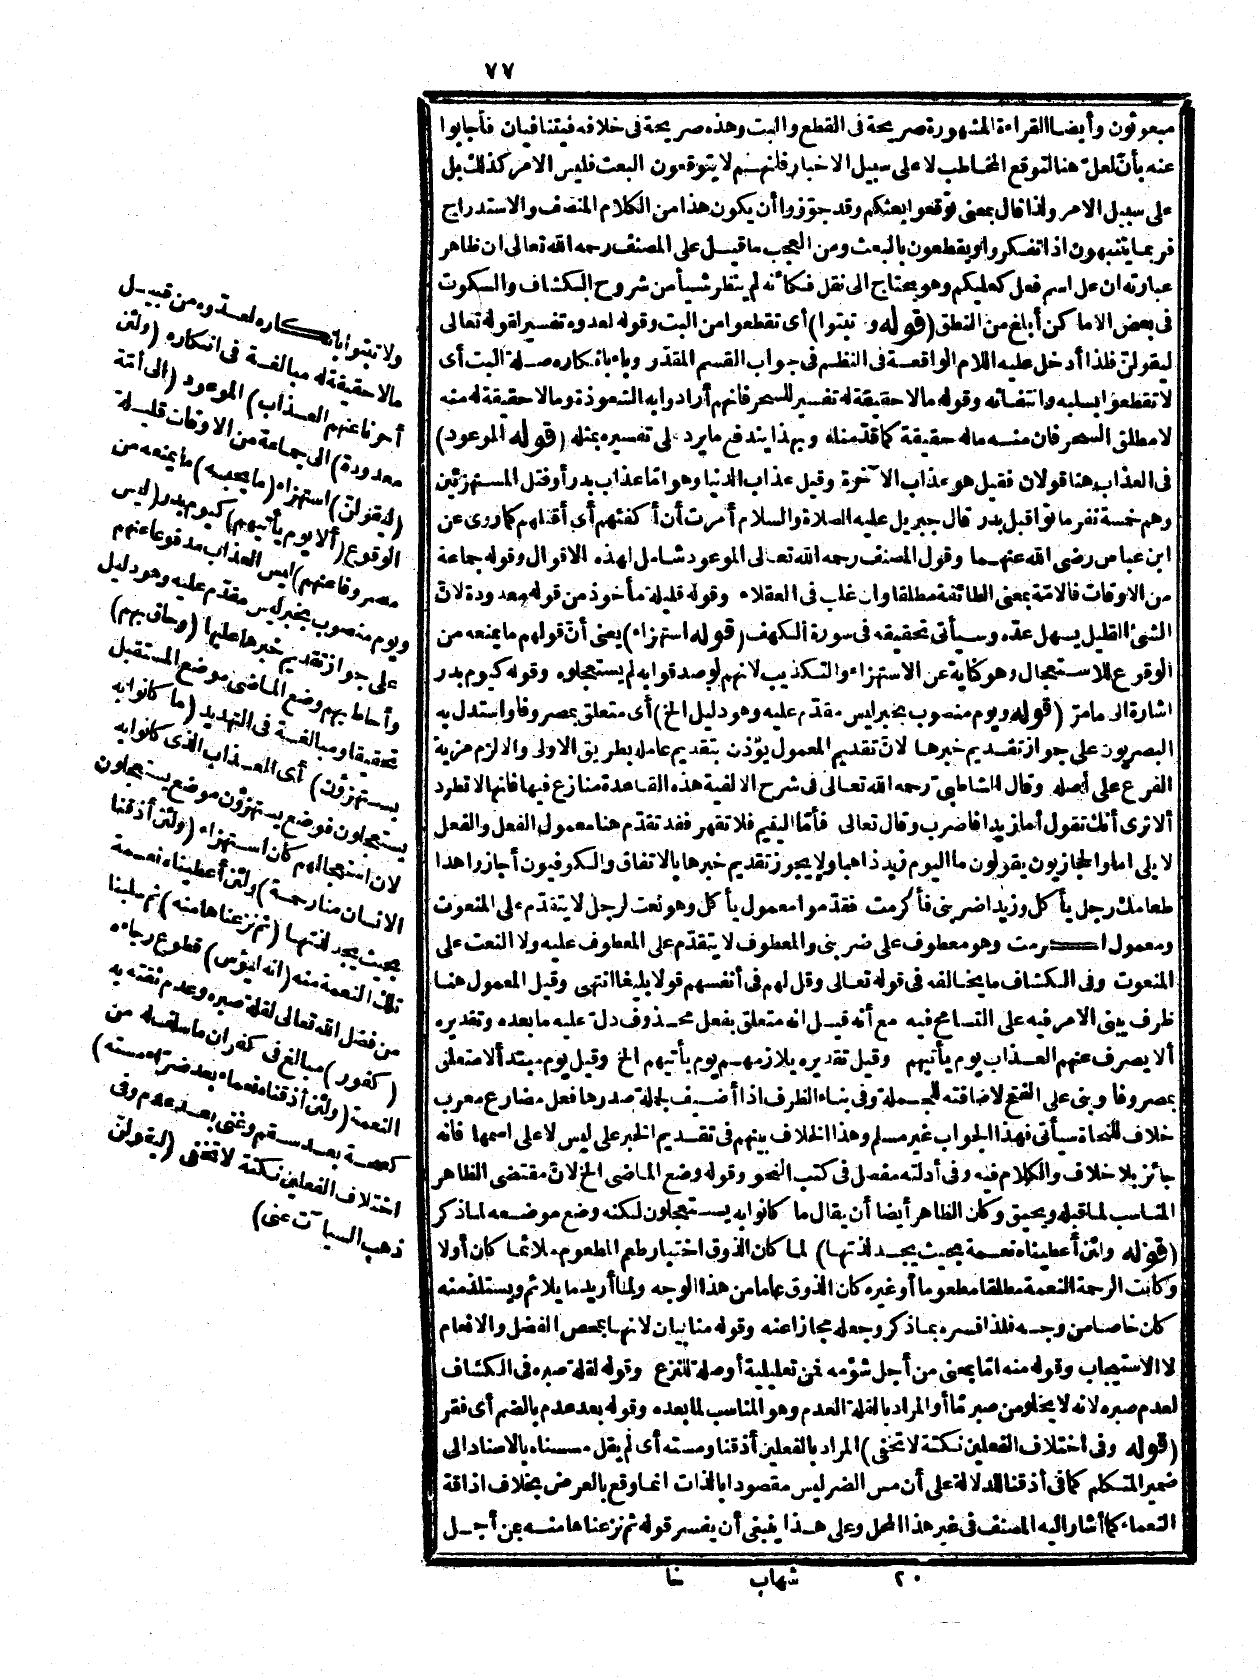 ٧٧
مبعوثون وأيضا القراءة المشهورة صريحة فى القطع والبت وهذه صريحة فى خلافه فيتنافيان فأجابوا
عنه بأن لعل هنا لتوقع المخاطب لا على سبيل الاخبار فانهم لا يتوقعون البعث فليس الامر كذلك بل
على سبيل الامر ولذا قال بمعنى توقعوا بعثكم وقد جوّزوا أن يكون هذا من الكلام المنصف والاستدراج
فربما يتنبهون اذا تفكروا ويقطعون بالبعث ومن العجب ما قيل على المصنف رحمه الله تعالى ان ظاهر
عبارته ان عل اسم فعل كعليكم وهو يحتاج الى نقل فكأنه لم ينظر شيأ من شروح الكشاف والسكوت
فى بعض الاماكن أبلغ من النطق (قوله و تبتوا) أى تقطعوا من البت وقوله لعدوه تفسير لقوله تعالى
ليقولنّ فلذا أدخل عليه اللام الواقعة فى النظم فى جواب القسم المقدّر وباء بانكاره صلة البت أى
لا تقطعوا بسلبه وانتفائه وقوله مالا حقيقة له تفسير للسحر فانهم أرادوا به الشعوذة وما لا حقيقة له منه
لا مطلق السحر فان منه ماله حقيقة كما قدّمناه وبهذا يندفع ما يرد على تفسيره بمثله (قوله الموعود)
فى العذاب هنا قولان فقيل هو عذاب الآخرة وقيل عذاب الدنيا وهو امّا عذاب بدر أو قتل المستهزئين
وهم خمسة نفر ماتوا قبل بدر قال جبريل عليه الصلاة والسلام أمرت أن أكفئهم أى أقتلهم كما روى عن
ابن عباس رضى الله عنهما وقول المصنف رحمه الله تعالى الموعود شامل لهذه الاقوال وقوله جماعة
من الاوقات فالامّة بمعنى الطائفة مطلقا وان غلب فى العقلاء وقوله قليلة مأخوذ من قوله معدودة لانّ
الشئ القليل يسهل عدّه وسيأتى تحقيقه فى سورة الكهف (قوله استهزاء) يعنى أنّ قولهم ما يمنعه من
الوقوع للاستعجال وهو كناية عن الاستهزاء والتكذيب لانهم لو صدقوا به لم يستعجلوه وقوله كيوم بدر
اشارة الى مامرّ (قوله ويوم منصوب بخبر ليس مقدّم عليه وهو دليل الخ) أى متعلق بمصروفا واستدل به
البصريون على جواز تقديم خبرها لانّ تقديم المعمول يؤذن بتقديم عامله بطريق الاولى والا لزم مزية
الفرع على أصله وقال الشاطبى رحمه الله تعالى فى شرح الالفية هذه القاعدة منازع فيها فانها لا تطرد
ألا ترى أنك تقول أما زيدا فاضرب وقال تعالى فأمّا اليتيم فلا تقهر فقد تقدّم هنا معمول الفعل والفعل
لا يلى اما والحجازيون يقولون ما اليوم زيد ذاهبا ولا يجوز تقديم خبرها بالاتفاق والكوفيون أجازوا هذا
طعامك رجل يأكل وزيدا ضربنى فأكرمت فقدموا معمول يأكل وهو نعت لرجل لا يتقدّم على المنعوت
ومعمول اكرمت وهو معطوف على ضربنى والمعطوف لا يتقدّم على المعطوف عليه ولا النعت على
المنعوت وفى الكشاف ما يخالفه فى قوله تعالى وقل لهم فى أنفسهم قولا بليغا انتهى وقيل المعمول هنا
ظرف يبنى الامر فيه على التسامح فيه مع أنه قيل انه متعلق بفعل محذوف دلّ عليه ما بعده وتقديره
ألا يصرف عنهم العذاب يوم يأتيهم وقيل تقديره يلازمهم يوم يأتيهم الخ وقيل يوم مبتدأ لا متعلق
بمصروفا وبنى على الفتح لاضافته للجملة وفى بناء الظرف اذا أضيف لجملة صدرها فعل مضارع معرب
خلاف للنحاة سيأتى فهذا الجواب غير مسلم وهذا الخلاف بينهم فى تقديم الخبر على ليس لا على اسمها فانه
جائز بلا خلاف والكلام فيه وفى أدلته مفصل فى كتب النحو وقوله وضع الماضى الخ لانّ مقتضى الظاهر
المناسب لما قبله ويحيق وكان الظاهر أيضا أن يقال ما كانوا به يستعجلون لكنه وضع موضعه لما ذكر
(قوله ولئن أعطيناه نعمة بحيث يجد لذتها) لما كان الذوق اختبار طعم المطعوم ملائما كان أولا
وكانت الرحمة النعمة مطلقا مطعوما أو غيره كان الذوق عاما من هذا الوجه ولما أريد ما يلائم ويستلذ منه
كان خاصا من وجه فلذا فسره بما ذكر وجعله مجازا عنه وقوله منا بيان لانها بمحض الفضل والانعام
لا الاستيجاب وقوله منه امّا بمعنى من أجل شؤمه فمن تعليلية أو صلة للنزع وقوله لقلة صبره فى الكشاف
لعدم صبره لانه لا يخلو من صبر مّا أو المراد بالقلة العدم وهو المناسب لما بعده وقوله بعد عدم بالضم أى فقر
(قوله وفى اختلاف الفعلين نكتة لا تخفى) المراد بالفعلين أذقنا ومسته أى لم يقل مسسناه بالاسناد الى
ضمير المتكلم كما فى أذقنا للدلالة على أن مس الضر ليس مقصودا بالذات انما وقع بالعرض بخلاف اذاقة
النعماء كما أشار اليه المصنف فى غير هذا المحل وعلى هذا ينبغى أن يفسر قوله ثم نزعناها منه بمن أجل
٢٠ شهاب خا
ولا تبتوا بانكاره لعدّوه من قبيل
مالا حقيقة له مبالغة فى انكاره (ولئن
أخرنا عنهم العذاب) الموعود (الى أمّة
معدودة) الى جماعة من الاوقات قليلة
(ليقولنّ) استهزاء (ما يحبسه) ما يمنعه من
الوقوع (ألا يوم يأتيهم) كيوم بدر (ليس
مصروفا عنهم) ليس العذاب مدفوعا عنهم
ويوم منصوب بخبر ليس مقدّم عليه وهو دليل
على جواز تقديم خبرها عليها (وحاق بهم)
وأحاط بهم وضع الماضى موضع المستقبل
تحقيقا ومبالغة فى التهديد (ما كانوا به
يستهزؤن) أى العذاب الذى كانوا به
يستعجلون فوضع يستهزؤن موضع يستعجلون
لان استعجالهم كان استهزاء (ولئن أذقنا
الانسان منا رحمة) ولئن أعطيناه نعمة
بحيث يجد لذتها (ثم نزعناها منه) ثم سلبنا
تلك النعمة منه (انه ليؤس) قطوع رجاءه
من فضل الله تعالى لقلة صبره وعدم ثقته به
(كفور) مبالغ فى كفران ما سلف له من
النعمة (ولئن أذقناه نعماء بعد ضرّاء مسته)
كصحة بعد سقم وغنى بعد عدم وفى
اختلاف الفعلين نكتة لا تخفى (ليقولنّ
ذهب السيآت عنى)